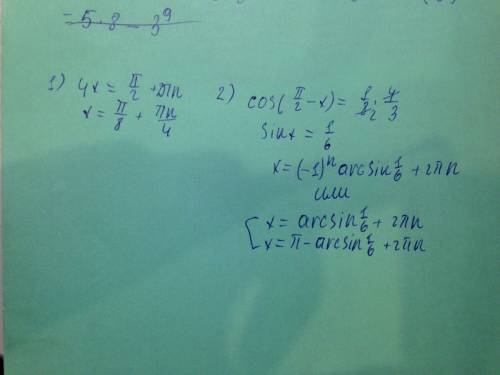 = 5·8 - 3⁹
1) 4x = π/2 + 2πn
x = π/8 + πn/4
2) cos(π/2 - x) = 1/8₂ · 4/3
sinx = 1/6
x = (-1)ⁿ arcsin 1/6 + 2πn
или
[ x = arcsin 1/6 + 2πn
x = π - arcsin 1/6 + 2πn